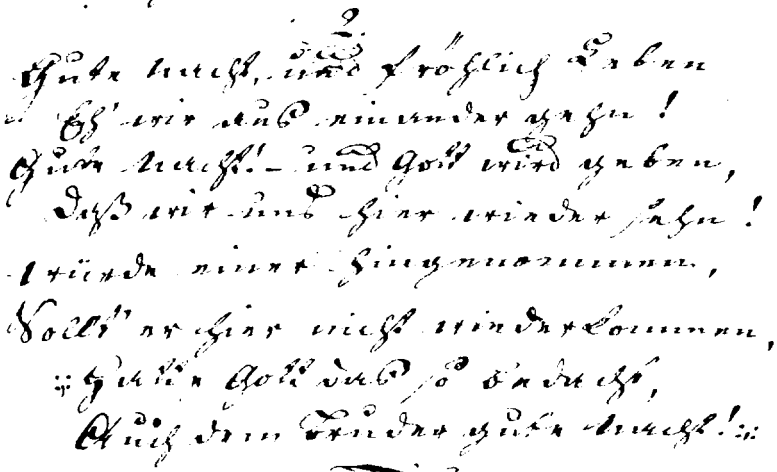 2
Gute Nacht, und fröhlich Leben
Eh' wir aus einander gehn!
Gute Nacht! - und Gott wird geben,
Daß wir uns hier wieder sehn!
Würde einer hingenommen,
Sollt' er hier nicht wiederkommen,
:,: Hätte Gott das so bedacht,
Auch dem Bruder gute Nacht! :,: